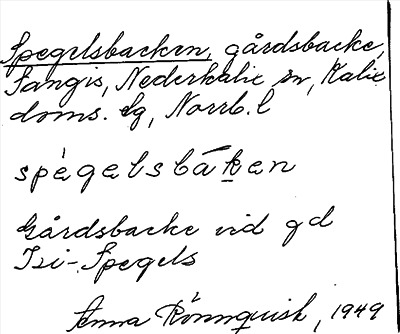 Spegelsbacken, gårdsbacke,
Sangis, Nederkalix sn, Kalix
doms. tg, Norrb. l
spègelsbáken
Gårdsbacke vid gd
Isi-Spegels
Anna Rönnquist, 1949